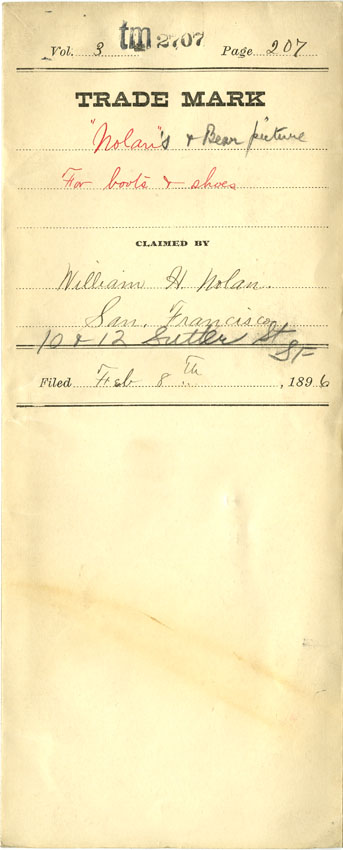 Vol. 3 tm 2707 Page 207
TRADE MARK
"Nolan"s & Bear picture
For boots & shoes
CLAIMED BY
William H. Nolan.
San Francisco
10 & 12 Sutter St
SF
Filed Feb 8th, 1896